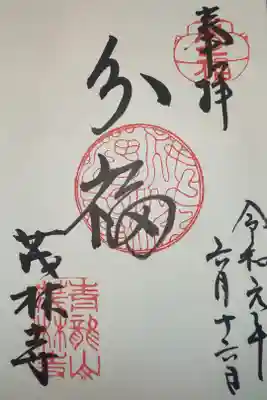 奉拝
分福
令和元年
六月十六日
茂林寺
青龍山
茂林寺